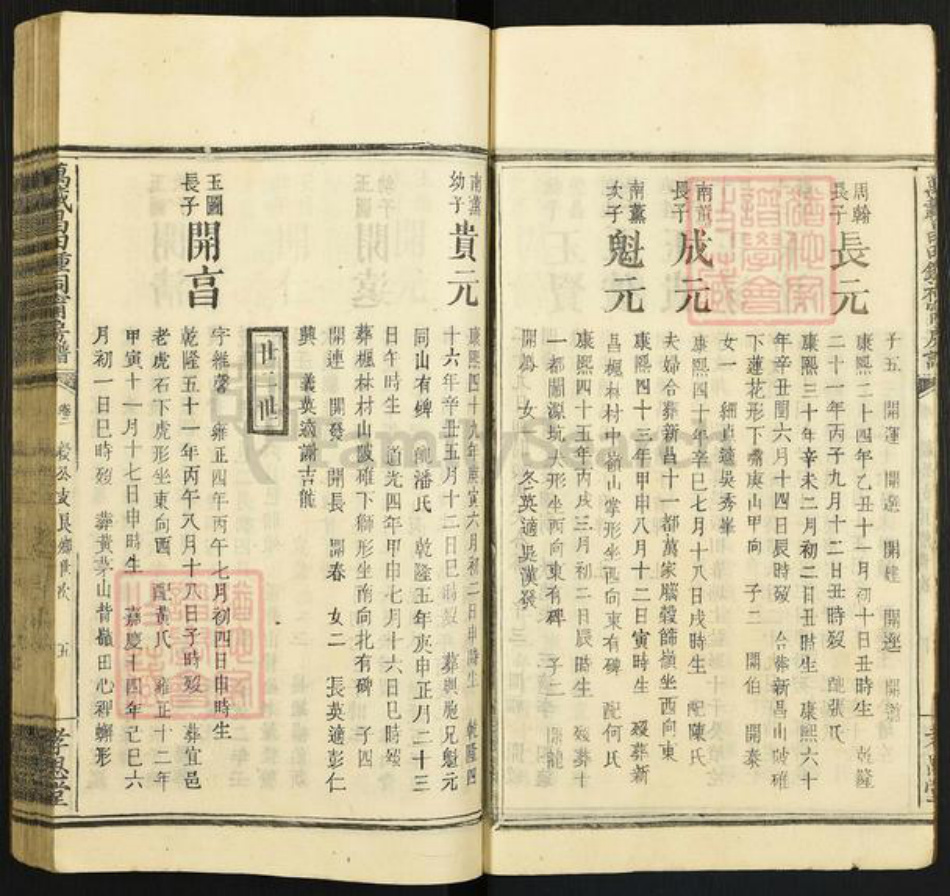 子五 開運 開選 開 開 開
周翰
長子
長元
康熙二十四年乙丑十一月初十日丑時生 乾隆
二十一年丙子九月十二日丑時歿 配張氏
康熙三十年辛未二月初二日丑時生 康熙六十
年辛丑閏六月十四日辰時歿 合葬新昌山
下蓮花形下嘴庚山甲向 子二 開伯 開泰
女一 細貞適吳秀峯
南薰
長子
成元
康熙四十年辛巳七月十八日戌時生 配陳氏
夫婦合葬新昌十一都萬家 嶺坐西向東
南薰
次子
魁元
康熙四十三年甲申八月十二日寅時生 歿葬新
昌楓林村中嶺山掌形坐西向東有碑 配何氏
康熙四十五年丙戌三月初二日辰時生 歿葬十
一都 源坑犬形坐西向東有碑 子二 開龍
開 女一 冬英適吳漢發
南薰
幼子
貴元
康熙四十九年庚寅六月初二日申時生 乾隆四
十六年辛丑五月十二日巳時歿 葬與胞兄魁元
同山有碑 配潘氏 乾隆五年庚申正月二十三
日午時生 道光四年甲申七月十六日巳時歿
葬楓林村山 下獅形坐南向北有碑 子四
開連 開發 開長 開春 女二 長英適彭仁
興 義英適 吉能
廿二世
玉圖
長子
開
字維馨 雍正四年丙午七月初四日申時生
乾隆五十一年丙午八月十八日子時歿 葬宜邑
老虎石下虎形坐東向西 配黃氏 雍正十二年
甲寅十一月十七日申時生 嘉慶十四年己巳六
月初一日巳時歿 葬黃茅山背嶺田心 形
卷二
五
孝思堂